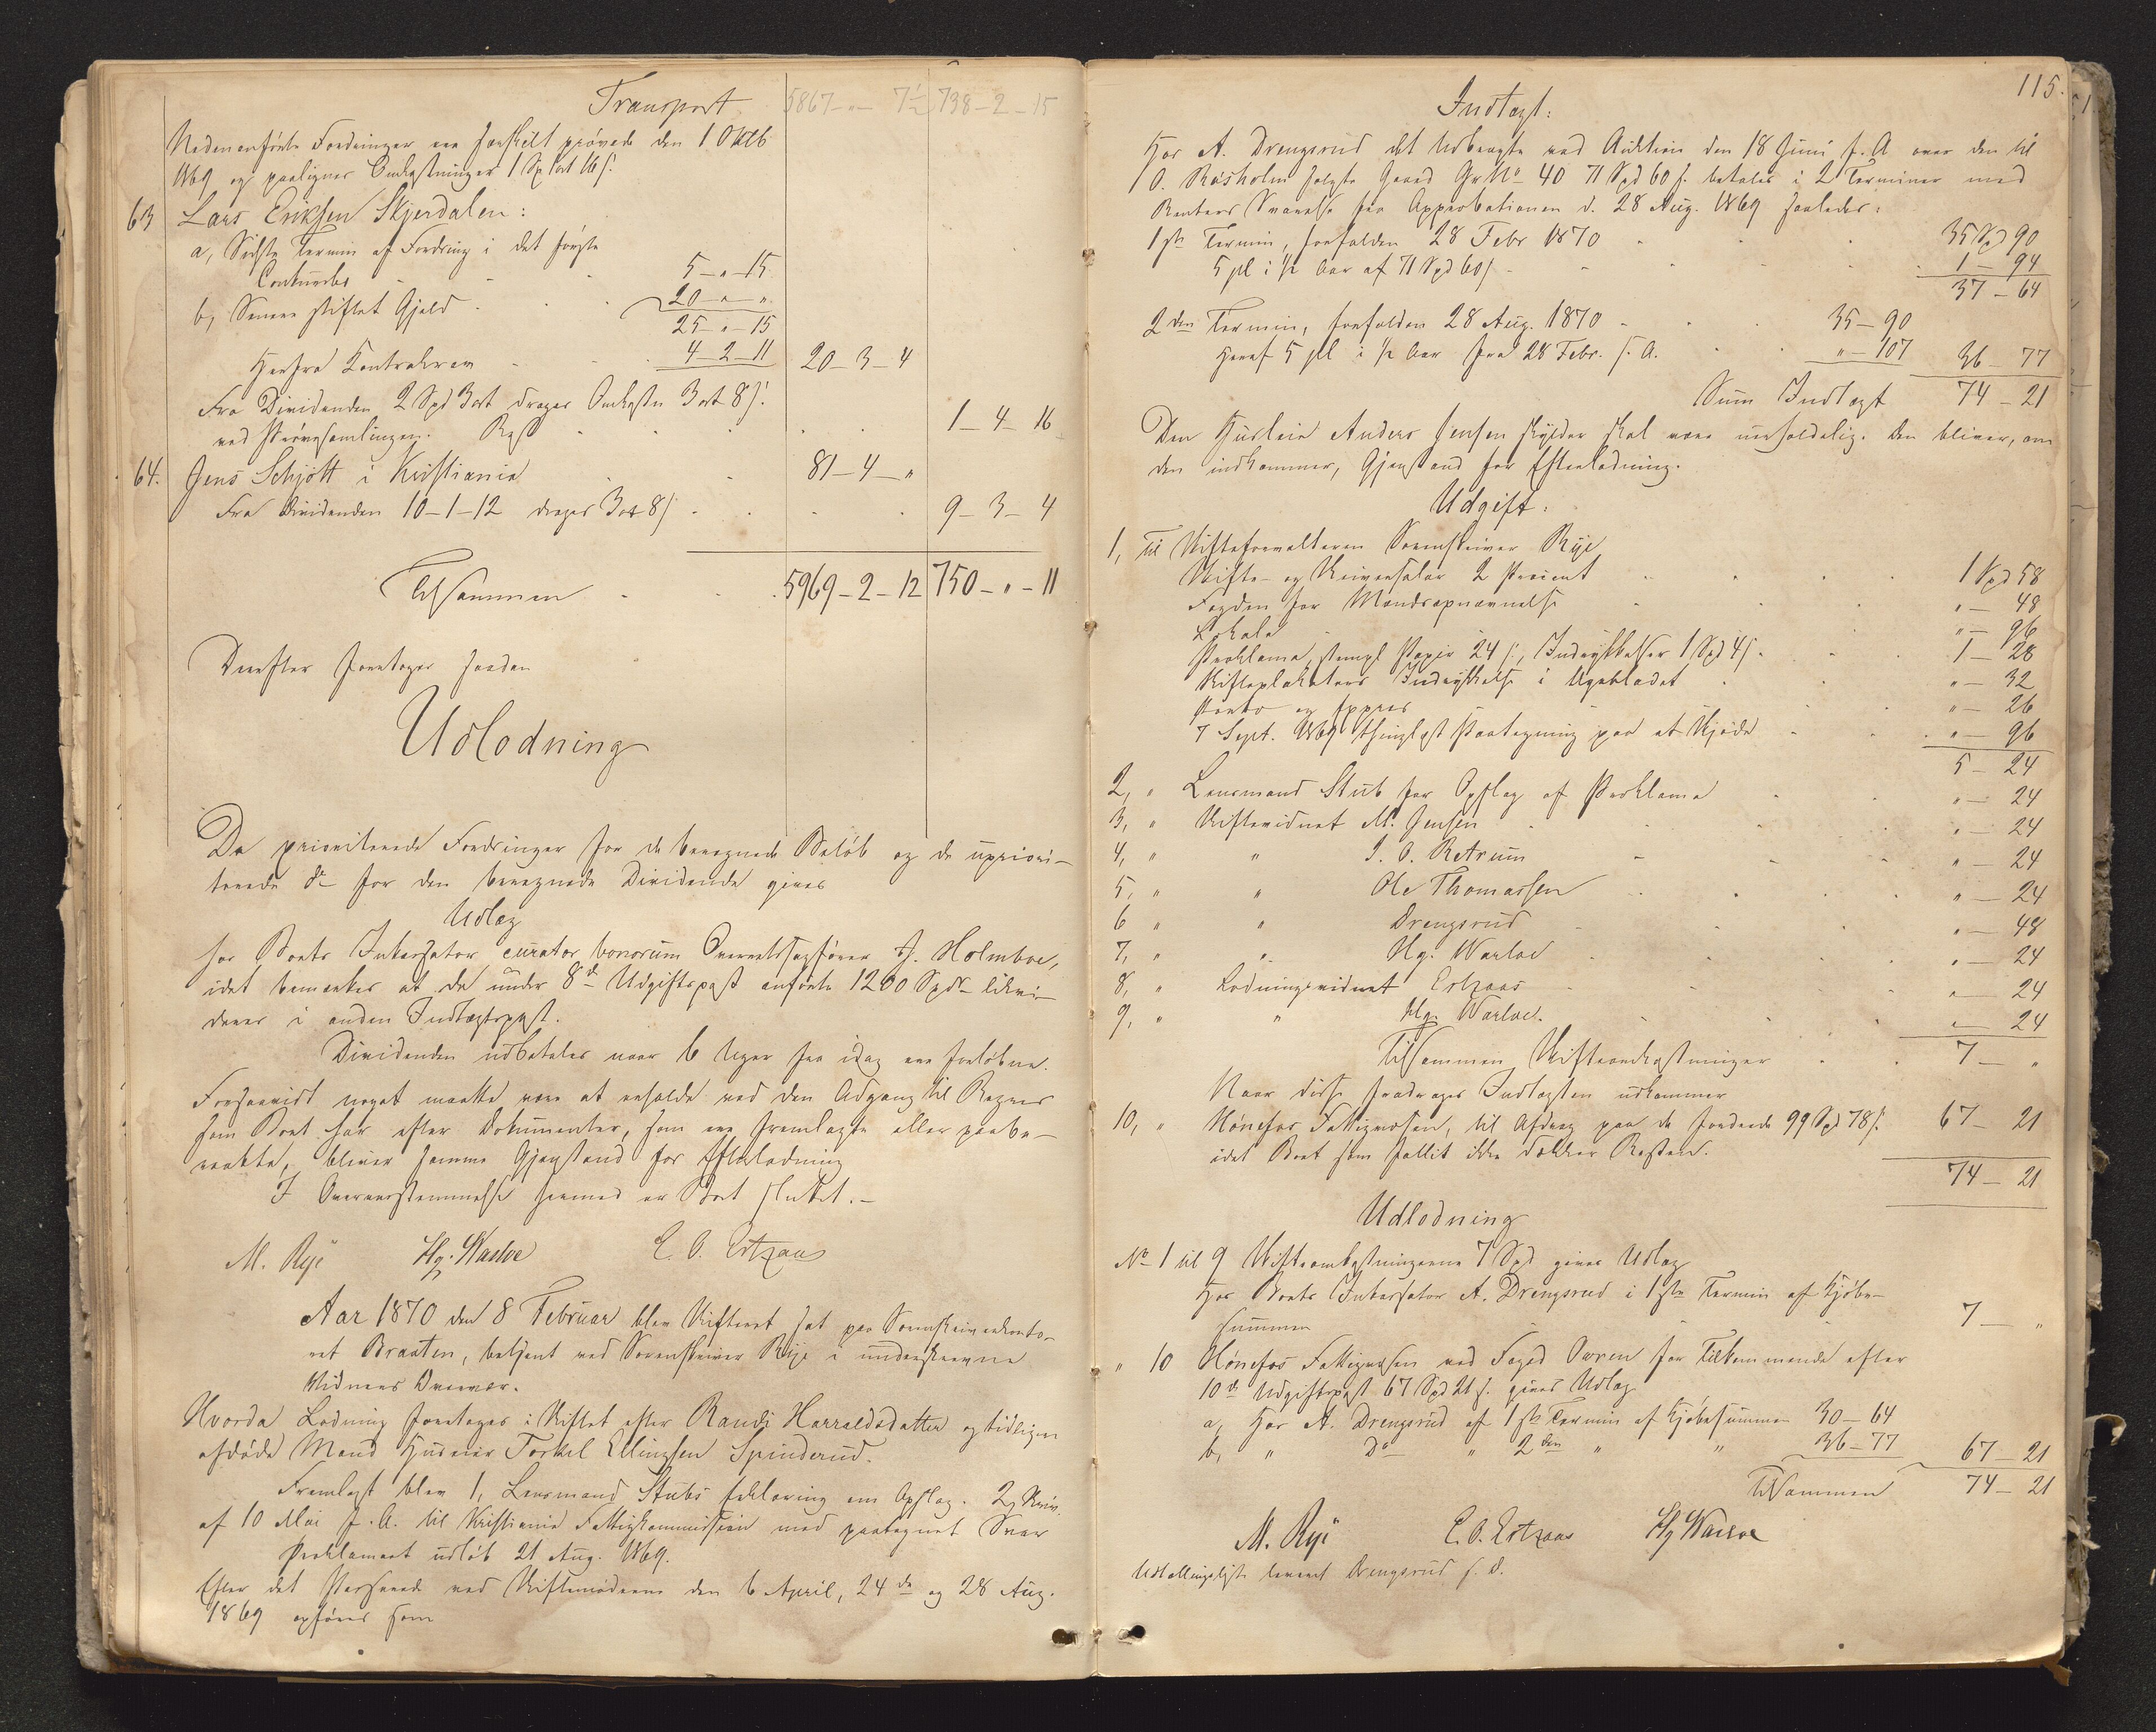 Transport 5867 - " - 7½ 738 - 2 - 15
Nedenanførte Fordringer ere særskilt prøvede den 1 Oktb
1869 og paaligner Omkostninger 1 Sp 1 ort 16 s.
63 Lars Eriksen Skjerdalen:
a, Sidste Termin af Fordring i det første
Conkursbo 5 - " - 15
b, Senere stiftet Gjeld 20 - " - "
25 - " - 15
Herfra Contrakrav 4 - 2 - 11 20 - 3 - 4
Fra Dividenden 2 Spd 3 ort drages Omkostn 3 ort 8 s.
ved Prøvesamlingen. Rest 1 - 4 - 16
64. Jens Schjøtt i Kristiania 81 - 4 - "
Fra Dividenden 10 - 1 - 12 drages 3 ort 8 s 9 - 3 - 4
Tilsammen 5969 - 2 - 12 750 - " - 11
Derefter foretoges saadan
Udlodning
De prioriterede Fordringer for de beregnede Beløb og de upriori-
terede do for den beregnede Dividende gives
Udlæg
hos Boets Inkassator curator bonorum Overretssagfører A. Holmboe,
idet bemærkes at de under 8de Udgiftspost anførte 1200 Spdr likvi-
deres i anden Indtægtspost.
Dividenden udbetales naar 6 Uger fra idag ere forløbne.
Forsaavidt noget maatte være at erholde ved den Adgang til Regres
som Boet har efter Dokumenter, som ere fremlagte eller paabe-
raabte, bliver samme Gjenstand for Efterlodning
I Overensstemmelse hermed er Boet sluttet. -
M. Rye Hg. Warloe E. O. Ertzaas
Aar 1870 den 8 Februar blev Skifteret sat paa Sorenskriverkonto-
ret Braaten, betjent ved Sorenskriver Rye i underskrevne
Vidners Overvær.
Hvorda Lodning foretoges i Skiftet efter Randi Harraldsdatter og tidligere
afdøde Mand Husmand Torkel Ellingsen Spinderud.
Fremlagt blev 1, Lensmand Stubs Erklæring om Opslag. 2, Skriv.
af 10 Mai f. A. til Kristiania Fattigkommission med paategnet Svar
Proklamaet udløb 21 Aug. 1869.
Efter det Passerede ved Skiftemøderne den 6 April, 24de og 28 Aug.
1869 opføres som
115.
Indtægt:
Hos A. Drengsrud det Udbragte ved Auktion den 18 Juni f. A over den til
O. Røsholm solgte Gaard Gr No 40 71 Spd 60 s. betales i 2 Terminer med
Renters Svarelse fra Approbationen d. 28 Aug. 1869 saaledes:
1ste Termin, forfalden 28 Febr 1870 35 Spd 90
5 pCt i ½ Aar af 71 Spd 60 s 1 - 94
37 - 64
2den Termin, forfalden 28 Aug. 1870 35 - 90
Heraf 5 pCt i ½ Aar fra 28 Febr. s. A. " - 107 36 - 77
Sum Indtægt 74 - 21
Den Husleie Anders Jensen skylder skal være uerholdelig. Den bliver, om
den indkommer, Gjenstand for Efterlodning.
Udgift:
1, Til Skifteforvalteren Sorenskriver Rye
Skifte- og Skriversalær 2 Procent 1 Spd 58
Fogden for Mandsopnævnelse " - 48
Lokale " - 96
Proklama, stempl Papir 24 s, Indrykkelser 1 Spd 4 s. 1 - 28
Skifteplakatens Indrykkelse i Ugebladet " - 32
Porto og Expres " - 26
7 Sept. 1869 thinglæst Paategning paa et Skjøde " - 96
5 - 24
2, " Lensmand Stub for Opslag af Proklama " - 24
3, " Skiftevidnet M. Jensen " - 24
4, " " I. O. Retrum " - 24
5, " " Ole Thomassen " - 24
6 " " Drengsrud " - 48
7, " " Hg. Warloe " - 24
8, " Lodningsvidnet Ertzaas " - 24
9, " " Hg. Warloe. " - 24
Tilsammen Skifteomkostninger 7 - "
Naar disse fradrages Indtægten udkommer
10, " Hønefos Fattigvæsen, til Afdrag paa de fordrede 99 Spd 78 s. 67 - 21
idet Boet som fallit ikke dækker Resten.
74 - 21
Udlodning
No 1 til 9 Skifteomkostningerne 7 Spd gives Udlæg
Hos Boets Inkassator A. Drengsrud i 1ste Termin af Kjøbe-
summen 7 - "
" 10 Hønefos Fattigvæsen ved Foged Owren for Tilkommende efter
10de Udgiftspost 67 Spd 21 s. gives Udlæg
a, Hos A. Drengsrud af 1ste Termin af Kjøbesummen 30 - 64
b, " Do " 2den " " 36 - 77 67 - 21
Tilsammen 74 - 21
M. Rye E. O. Ertzaas Hg Warloe
Udtællingsliste leveret Drengsrud s. D.